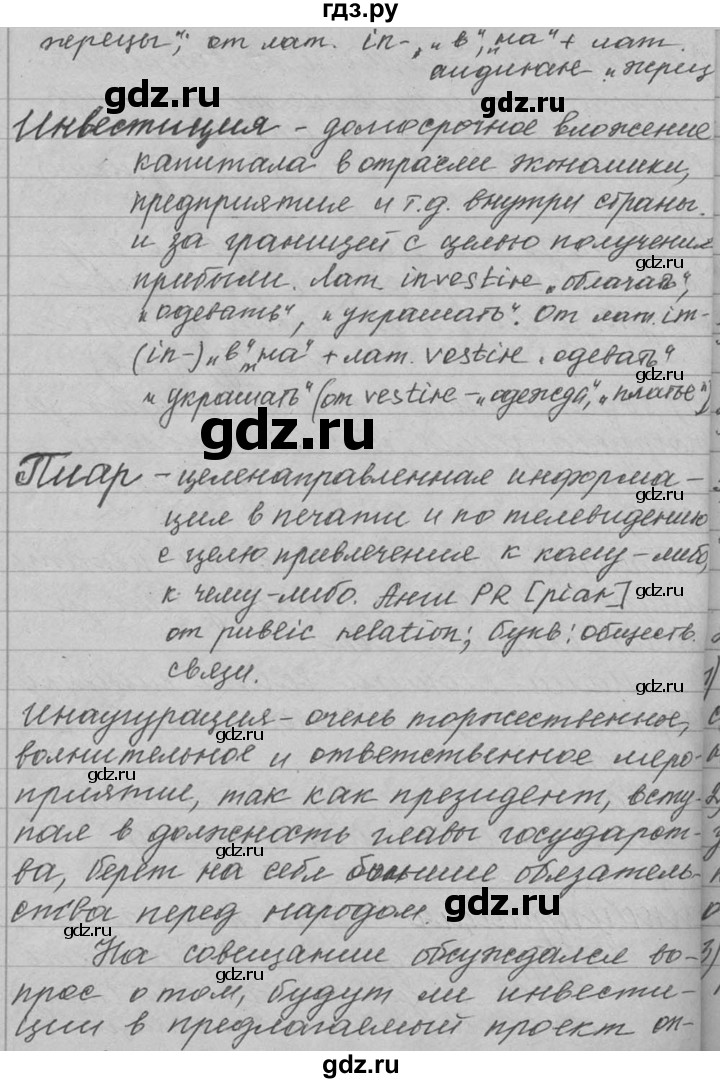 гдз.ру
жрецы", от лат. in-, „в", „на" + лат.
жрец
gdz.ru
Инвестиция – долгосрочное вложение
gdz.ru
капитала в отрасли экономики,
gdz.ru
предприятия и т.д. внутри страны
и за границей с целью получения
gdz.ru
прибыли. Лат. investire „облачать",
„одевать", „украшать". От лат. im-
gdz.ru
(in-) „в" „на" + лат. vestire „одевать"
„украшать" (от vestire – „одежда", „платье")
gdz.ru
Пиар – целенаправленная информа-
gdz.ru
ция в печати и по телевидению
с целю привлечения к кому-либо,
к чему-либо. Англ PR [piar]
gdz.ru
от public relation; букв: обществ.
связи.
gdz.ru
Инаугурация – очень торжественное,
волнительное и ответственное меро-
gdz.ru
приятие, так как президент, всту-
пая в должность главы государст-
gdz.ru
ва, берет на себя большие обязатель-
ства перед народом.
gdz.ru
gdz.ru
На совещании обсуждался во-
прос о том, будут ли инвести-
gdz.ru
ции в предлагаемый проект оп-
gdz.ru